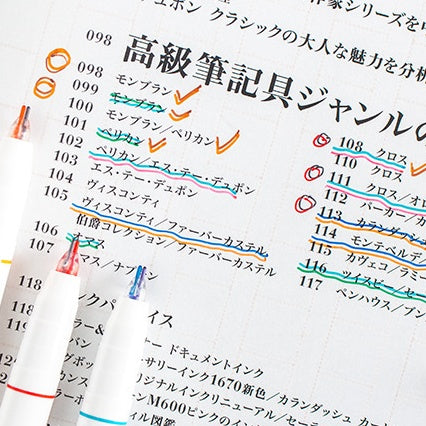 作家シリーズを
デュポン クラシックの大人な魅力を分析
098 高級筆記具ジャンルの
098 モンブラン
099 モンブラン
100 モンブラン/ペリカン
101 ペリカン
102 ペリカン/エス・テー・デュポン
103 エス・テー・デュポン
104 ヴィスコンティ
105 ヴィスコンティ/ファーバーカステル
伯爵コレクション/ファーバーカステル
106 オマス
107 マス/ナ
108 クロス
110 クロス
111 クロス/オロ
112 パーカー/カ
113 カランダッシュ
114 モンテベルデ
115 カヴェコ/ラミー
116 ツイスビー/セー
117 ペンハウス/プン
118
118
119
ックパ イス
ラー& ー ドキュメントインク
バン ーサリーインク1670新色/カランダッシュ カー
グボッ リジナルインクリニューアル/セーラ
カンス ーンM600ピンクのイン
ボー イル図鑑